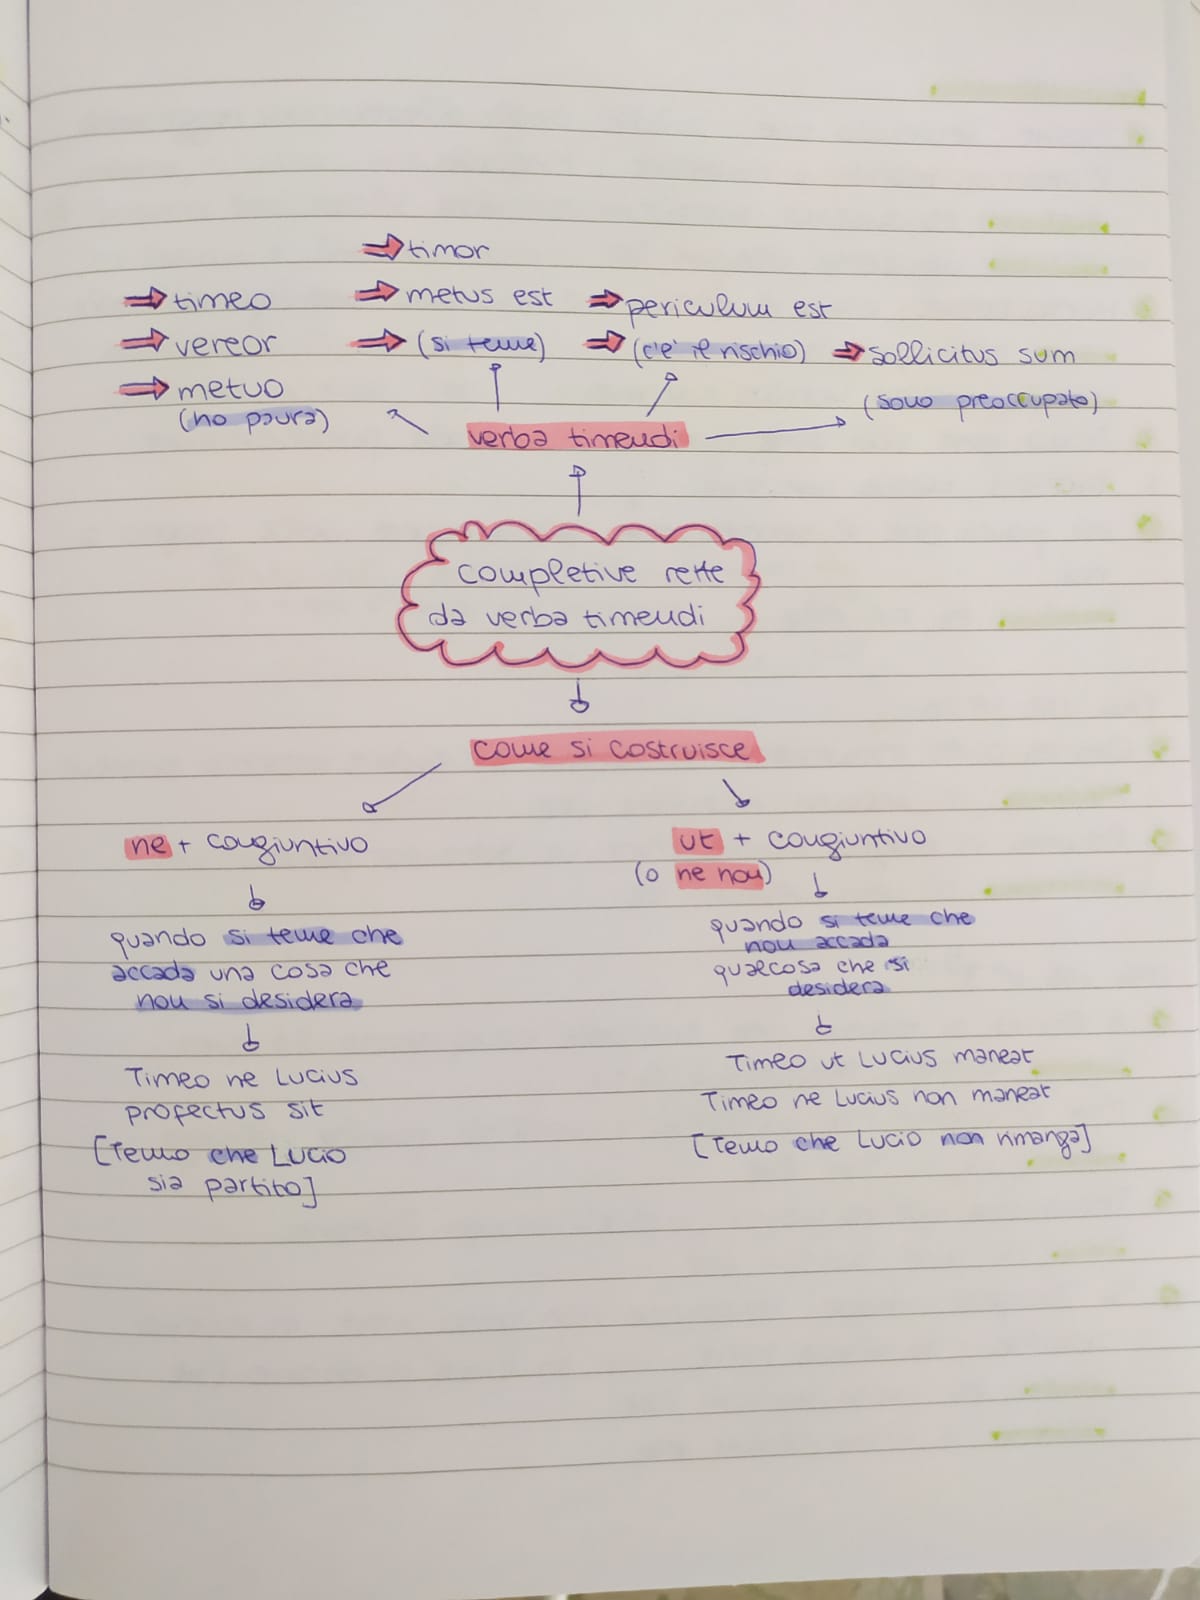 timor
timeo
metus est
periculum est
vereor
(si teme)
(c'è il rischio)
sollicitus sum
metuo
(ho paura)
(sono preoccupato)
verba timendi
completive rette
da verba timendi
come si costruisce
ne + congiuntivo
quando si teme che
accada una cosa che
non si desidera
Timeo ne Lucius
profectus sit
[Temo che Lucio
sia partito]
ut + congiuntivo
(o ne non)
quando si teme che
non accada
qualcosa che si
desidera
Timeo ut Lucius maneat
Timeo ne Lucius non maneat
[Temo che Lucio non rimanga]